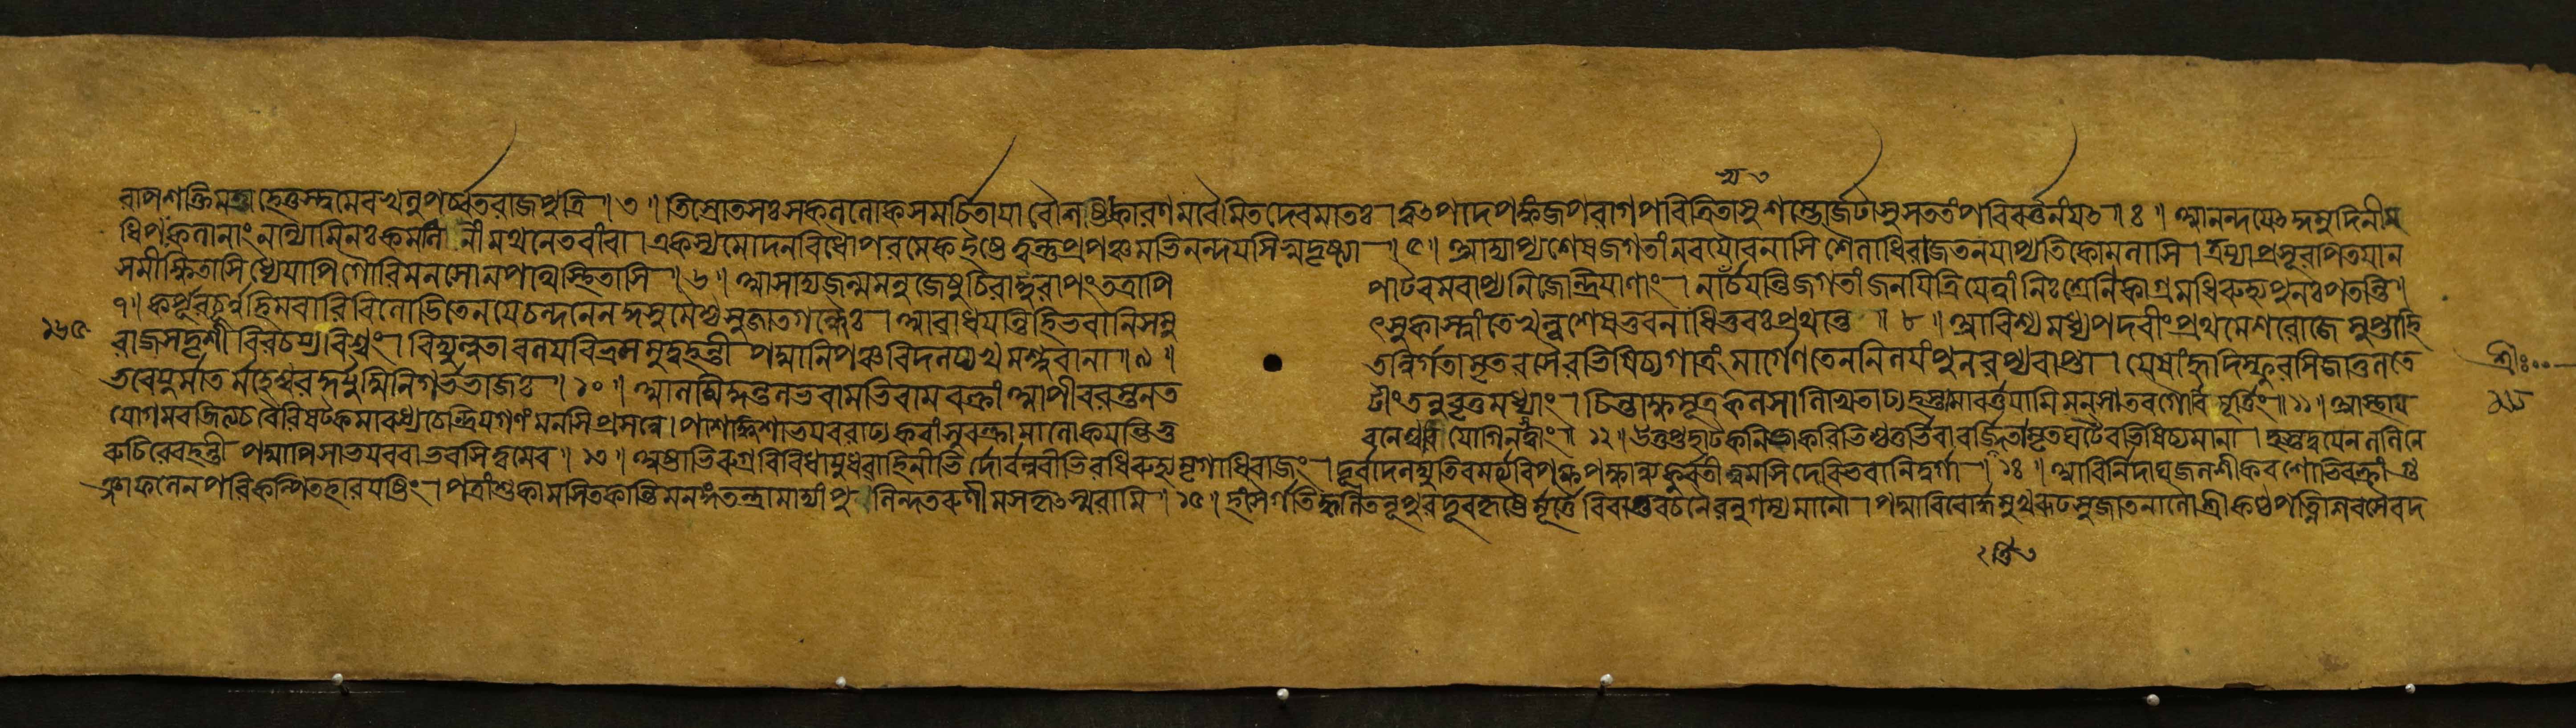 খ ৩
রাপশক্তিমত্তাহেতুস্ত্বমেবখলুপর্ব্বতরাজপুত্রি॥ ৩॥ ত্রিস্রোতসঃসকলদেবসমর্চিতায়া বৈশিষ্ট্যকারণমবৈমিতদেবমাতঃ। ত্বৎপাদপঙ্কজপরাগপবিত্রিতাসুশম্ভোর্জটাসুসততংপরিবর্ত্তনংযৎ॥ ৪॥ আনন্দয়েৎকুমুদিনীম
ধিপঃকলানাংনান্যামিনঃকমলিনীমথনেতরাংবা। একস্যমোদনবিধৌপরমেকমীষ্টেত্বন্তুপ্রপঞ্চমভিনন্দয়সিস্বদৃষ্ট্যা॥ ৫॥ আদ্যাপ্যশেষজগতাংনবযৌবনাসিশৈলাধিরাজতনয়াপ্যতিকোমলাসি। ত্রয্যাঃপ্রসূরপিতয়ান
সমীক্ষিতাসিধ্যেয়াপিগৌরিমনসোনপথিস্থিতাসি॥ ৬॥ আসাদ্যজন্মমনুজেষুচিরাদ্দুরাপংতত্রাপি পাটবমবাপ্যনিজেন্দ্রিয়াণাং। নার্চয়ন্তিজগতাংজনয়িত্রিয়েত্বাংনিঃশ্রেণিকাগ্রমধিরুহ্যপুনঃপতন্তি॥
৭॥ কর্পূরচূর্ণহিমবারিবিলোড়িতেনযেচন্দনেনকুসুমৈশ্চসুজাতগন্ধৈঃ। আরাধয়ন্তিহিভবানিসমু ৎসুকাস্ত্বাংতেখল্বশেষভুবনাধিভুবঃপ্রথন্তে॥ ৮॥ আবিশ্যমধ্যপদবীংপ্রথমেশরোজেসুপ্তাহি
১৬৫ রাজসদৃশীবিরচয্যবিশ্বং। বিদ্যুল্লতাবলয়বিভ্রমমুদ্বহন্তীপদ্মানিপঞ্চবিদলয্যখমশ্নুবানা॥ ৯॥ তন্নির্গতামৃতরসৈরভিষিচ্যগাত্রংমার্গেণতেননিলয়ংপুনরপ্যবাপ্তা। যেষাংহৃদিস্ফুরসিজাতুনতে শ্রীঃ
ভবেয়ুর্মাতর্মহেশ্বরকুটুম্বিনিগর্ভভাজঃ॥ ১০॥ আলম্বিকুন্তলভরামভিরামবক্ত্রাংআপীবরস্তনত টীংতনুবৃত্তমধ্যাং। চিন্তাক্ষসূত্রকলসালিখিতাঢ্যহস্তামাবর্ত্তয়ামিমনসাতবগৌরিমূর্ত্তিং॥ ১১॥ আস্থায়
যোগমবজিত্যচবৈরিষট্কমাবধ্যচেন্দ্রিয়গণংমনসিপ্রসন্নে। পাশাঙ্কুশাভয়বরাঢ্যকরাংসুবক্ত্রামালোকয়ন্তিভু বনেশ্বরিযোগিনস্ত্বাং॥ ১২॥ উত্তপ্তহাটকনিভাকরিভিশ্চতুর্ভিরাবর্জ্জিতামৃতঘটৈরভিষিচ্যমানা। হস্তদ্বয়েননলিনে
রুচিরেবহন্তীপদ্মাপিসাভয়বরাভবসিত্বমেব॥ ১৩॥ অষ্টাভিরুগ্রবিবিধায়ুধবাহিনীভির্দোর্বল্লরীভিরধিরুহ্যমৃগাধিরাজং। দূর্বাদলদ্যুতিরমর্ত্যবিপক্ষপক্ষান্ন্যক্কুর্বতীত্বমসিদেবিভবানিদুর্গা॥ ১৪॥ আবির্নিদাঘজলশীকরশোভিবক্ত্রাংগু
ঞ্জাফলেনপরিকল্পিতহারযষ্টিং। পত্রাংশুকামসিতকান্তিমনঙ্গতন্দ্রামাদ্যাংপুলিন্দতরুণীমসকৃৎস্মরামি॥ ১৫॥ হংসৈর্গতিক্বণিতনূপুরদূরকৃষ্টৈর্মূর্ত্তৈরিবার্থবচনৈরনুগম্যমানৌ। পদ্মাবিবোর্দ্ধমুখরূঢসুজাতনালৌশ্রীকণ্ঠপত্নিশিরসৈবদ